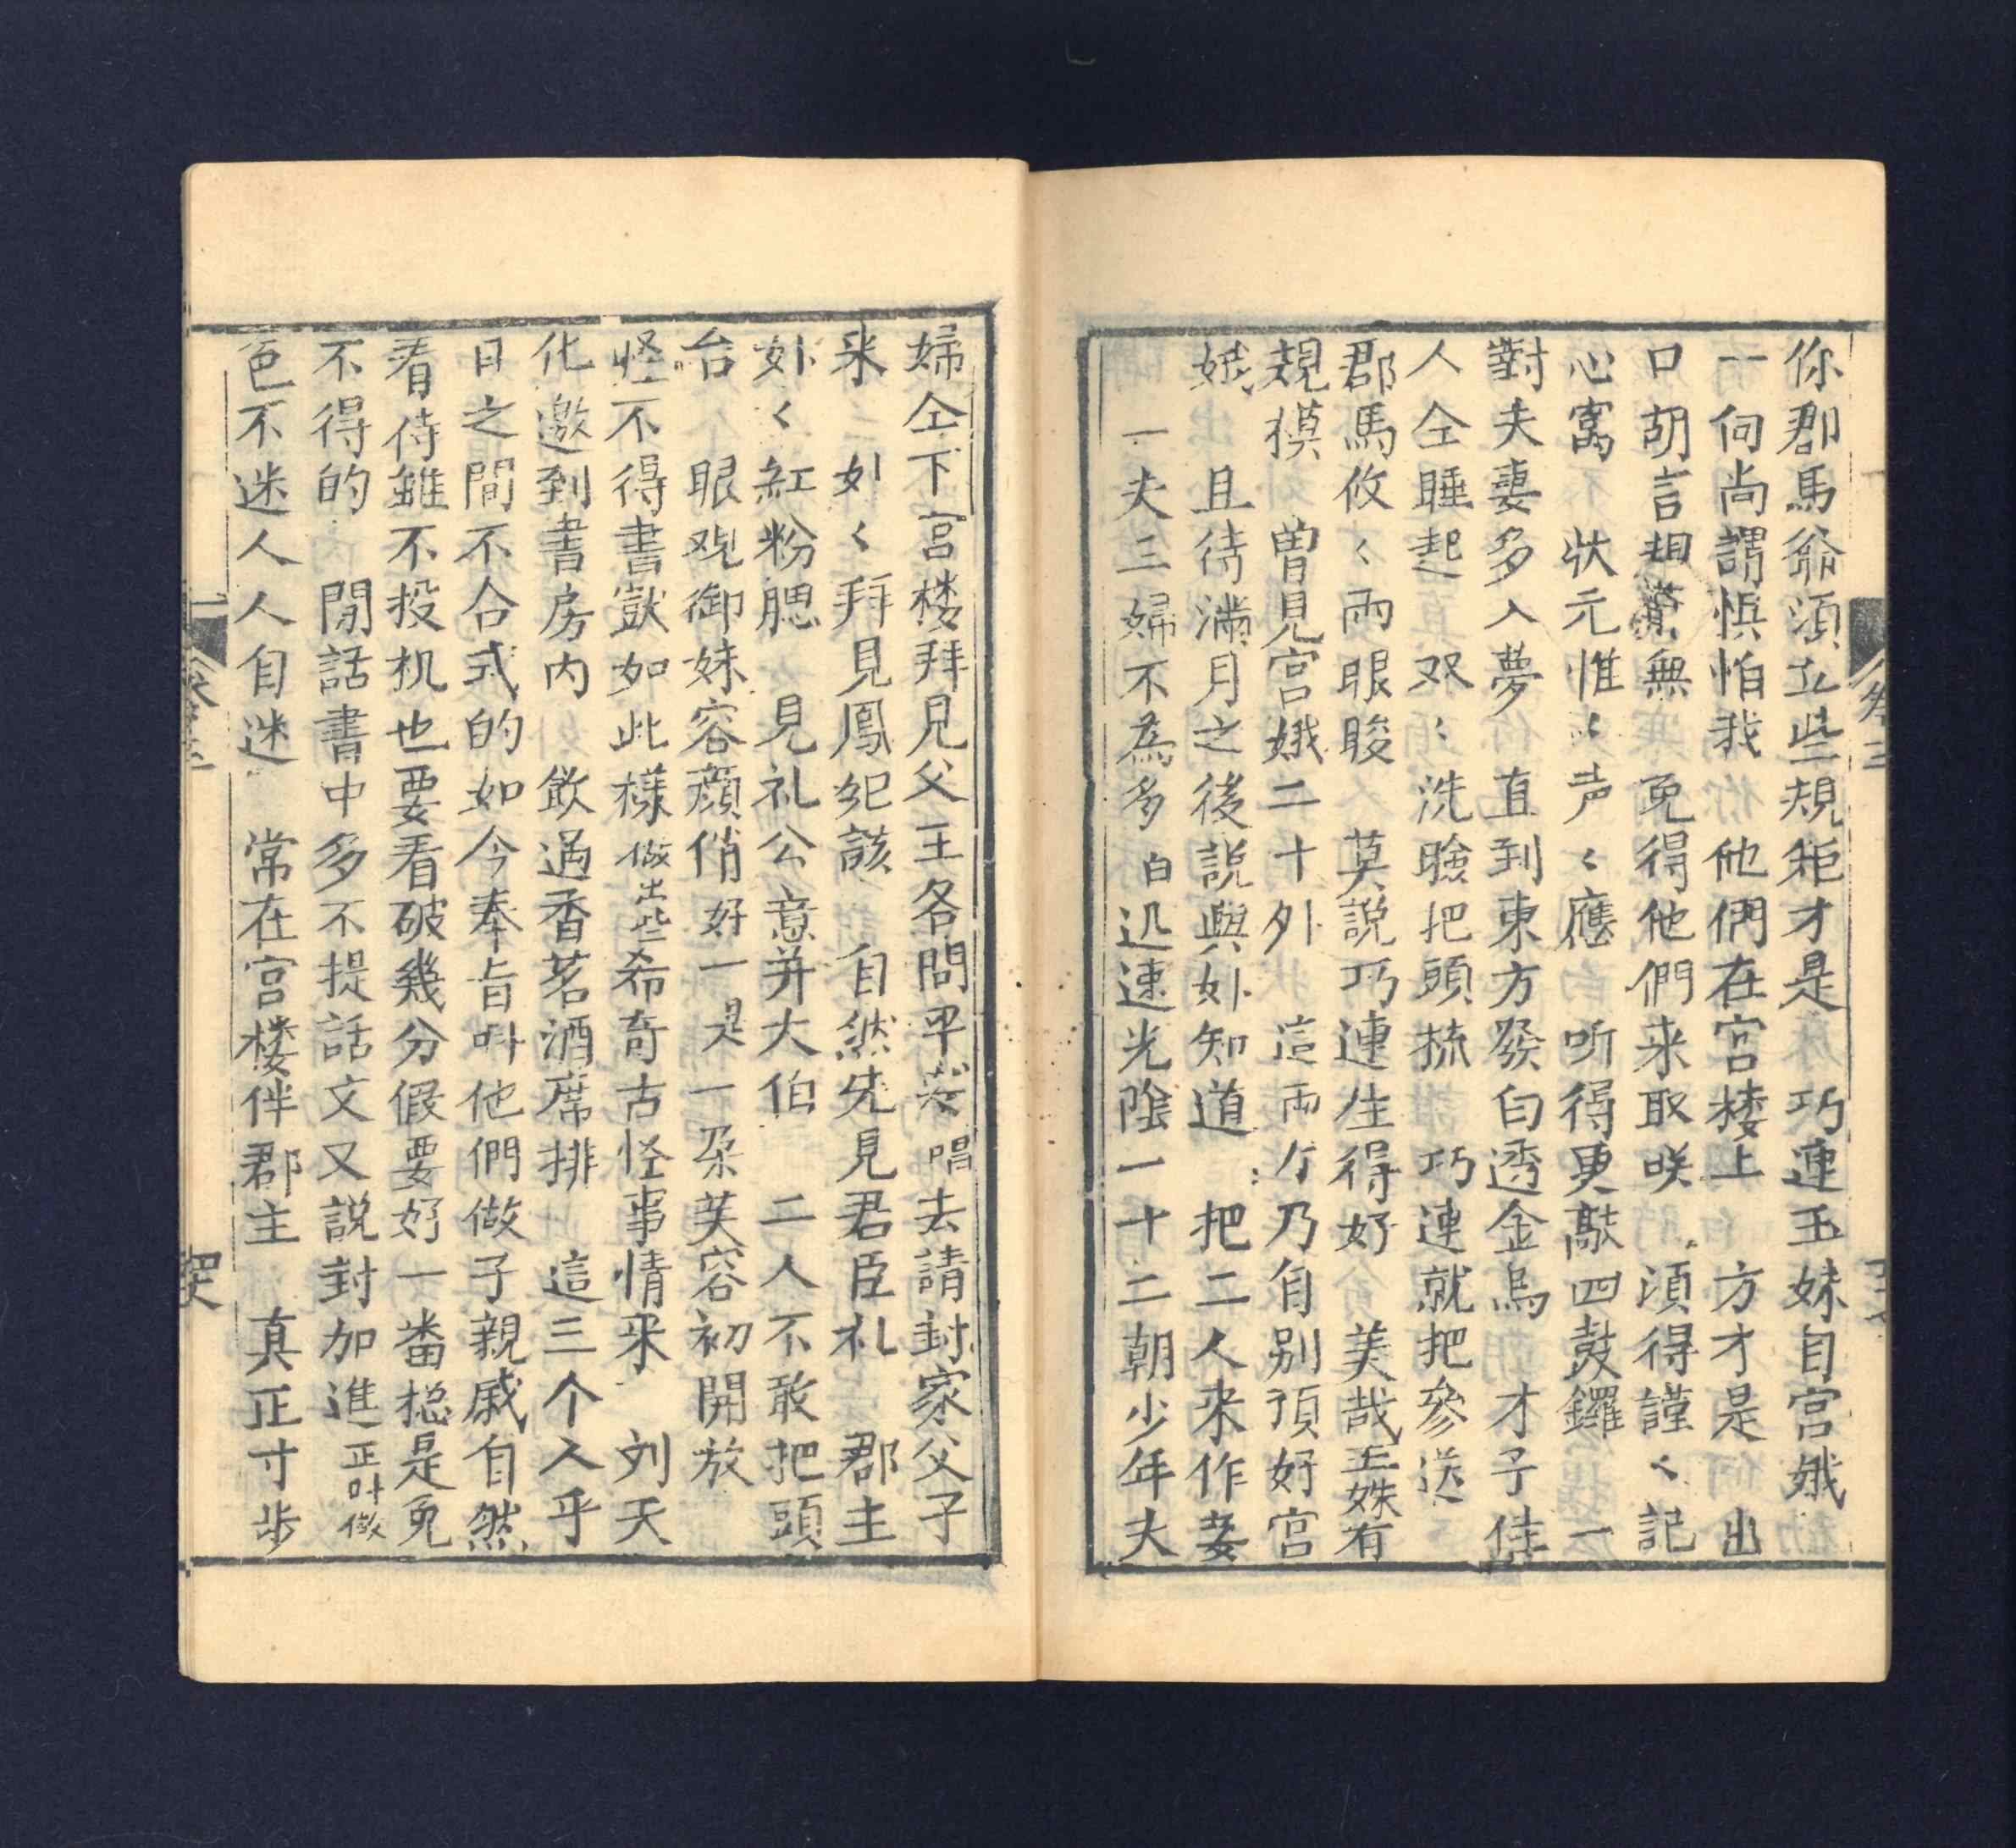 你郡馬爺須立些規矩才是 巧連玉妹自宮娥
一向尚謂惧怕我 他們在宮楼上 方才是 出
口胡言想落無 免得他們来取咲 須得謹く記
心窩 状元惟く声く應 听得更敲四鼓鑼 一
對夫妻多入夢 直到東方發白透金烏 才子佳
人仝睡起 双〻洗臉把頭梳 巧連就把參送
郡馬攸く両眼睃 莫說巧連生得好 美哉玉姝有
規模 曽見宮娥二十外 這両个乃自别預好宮
娥 且待滿月之後説與妳知道 把二人来作妾
一夫三婦不為多 白迅速光陰一十二朝少年夫
婦仝下宮楼拜見父王各問平安唱去請封家父子
來 如く拜見鳳妃該 自然先見君臣礼 郡主
妳く紅粉腮 見礼公意并大伯 二人不敢把頭
台 眼观御妹容顔俏 好一是一朶芙容初開放
怪不得書獃如此様 做出些希奇古怪事情来 刘天
化邀到書房内 飲過香茗酒席排 這三个人乎
日之間不合式的如今奉旨呌他們做子親戚自然
看待雖不投机也要看破幾分假要好一畨捴是免
不得的 閒話書中多不提話文又説封加進 正叶做
色不迷人人自迷 常在宮楼伴郡主 真正寸步